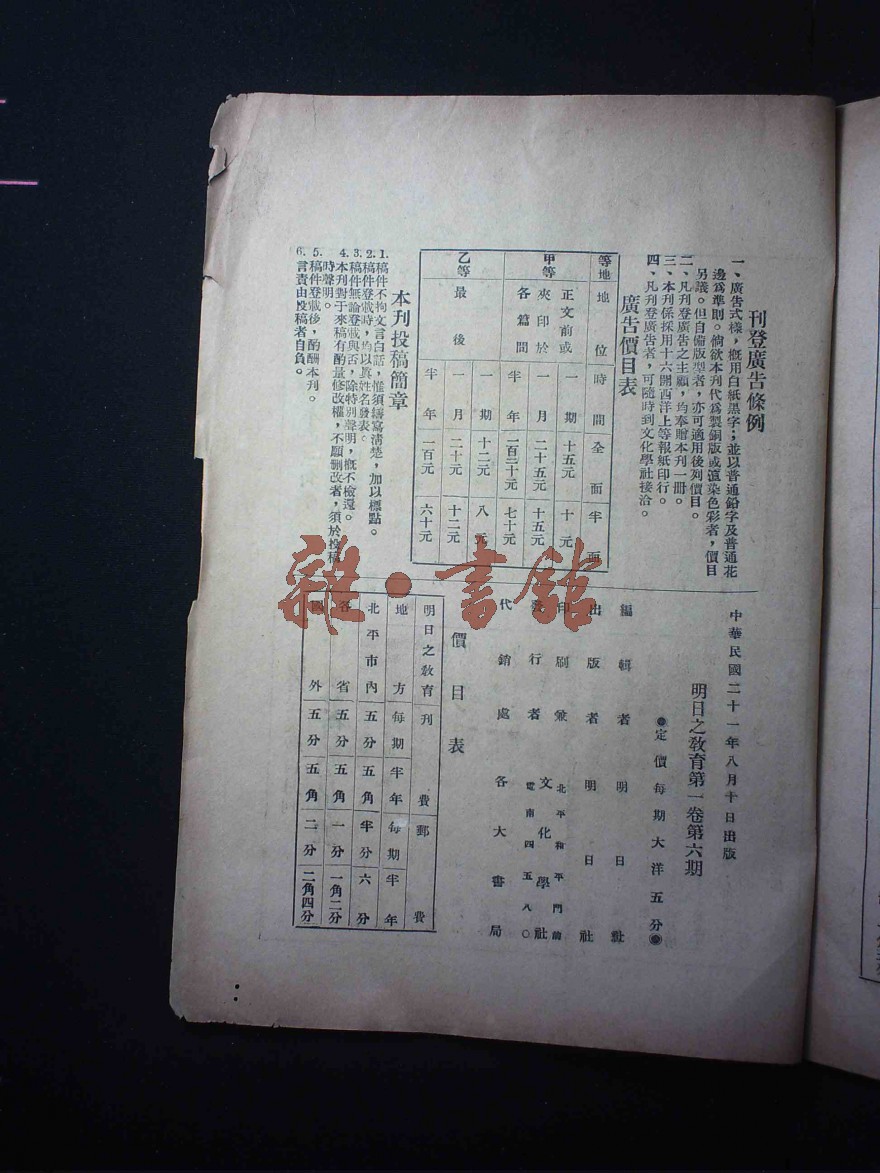 刊登廣告條例
一、廣告式樣，概用白紙黑字；並以普通鉛字及普通花
邊爲準則。倘欲本刊代爲製銅版或渲染色彩者，價目
另議。但自備版型者，亦可適用後列價目。
二、凡刊登廣告之主顧，均奉贈本刊一册。
三、本刊係採用十六開西洋上等報紙印行。
四、凡刊登廣告者，可隨時到文化學社接洽。
廣告價目表
等地 地位 時間 全面 半面
甲等 正文前或夾印於各篇間 一期 十五元 十元
一月 二十五元 十五元
半年 一百二十元 七十元
乙等 最後 一期 十二元 八元
一月 二十元 十二元
半年 一百元 六十元
本刊投稿簡章
1. 稿件不拘文言白話，惟須繕寫清楚，加以標點。
2. 稿件登載時，均以眞姓名發表。
3. 稿件無論登載與否，除特別聲明，概不檢還。
4. 本刊對于來稿有酌量修改權，不願刪改者，須於投稿
時聲明。
5. 稿件登載後，酌酬本刊。
6. 言責由投稿者自負。
中華民國二十一年八月十日出版
明日之教育第一卷第六期
●定價每期大洋五分●
編輯者 明日社
出版者 明日社
印刷兼發行者 文化學社
北平和平門前
電南四五八〇
代銷處 各大書局
價目表
明日之教育 刊費 郵費
地方 每期 半年 每期 半年
北平市內 五分 五角 半分 六分
各省 五分 五角 一分 一角二分
國外 五分 五角 二分 二角四分
雜·書館